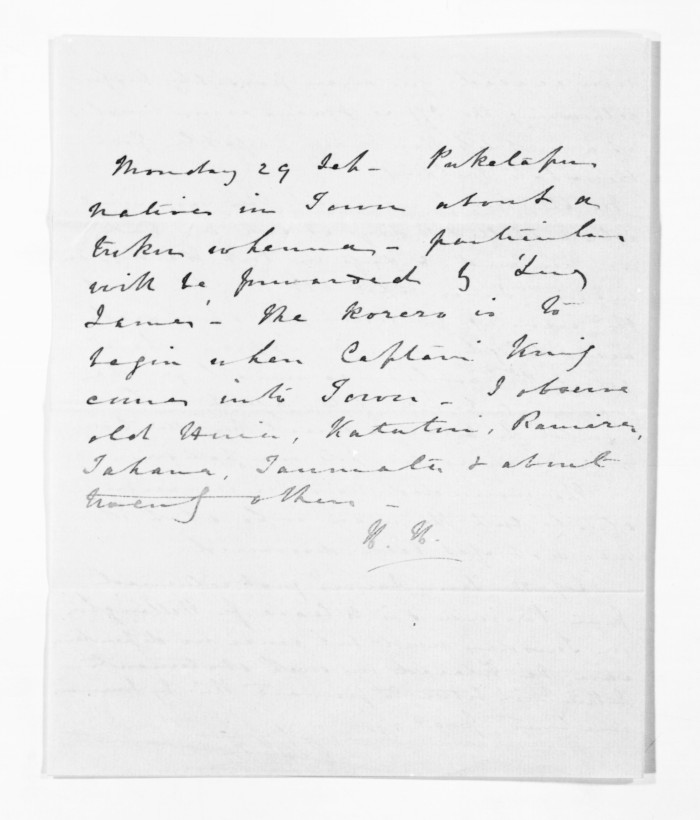 Monday 29 Feb - Puketapu
natives in Town about a
tuku whenua - particulars
will be forwarded by 'Lucy
James' - The Korero is to
begin when Captain King
comes into Town - I observe
old Huia, Katatori, Ramera,
Tahana, Taumata & about
twenty others -
H. H.